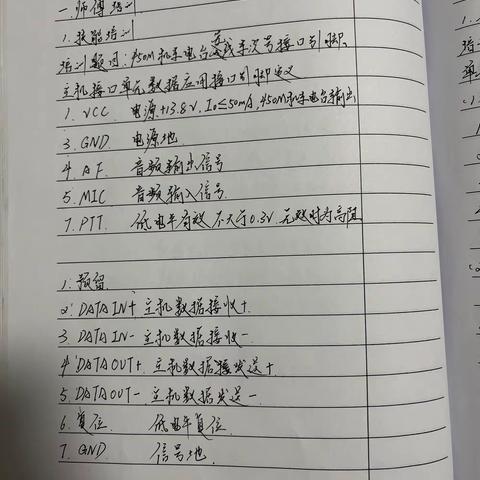 一.师傅培训
1.技能培训
培训题目:450M机车电台无线车次号接口引脚、
主机接口单元数据应用接口引脚定义
1. VCC 电源+13.8V, Io≤50mA, 450M机车电台输出
3. GND 电源地
4. AF. 音频输出信号
5. MIC 音频输入信号.
7. PTT. 低电平有效 不大于0.3V. 无效时为高阻
1. 预留.
2. DATA IN+ 主机数据接收+
3. DATA IN- 主机数据接收-
4. DATA OUT+. 主机数据发送+
5. DATA OUT- 主机数据发送-
6. 复位. 低电平复位.
7. GND 信号地.